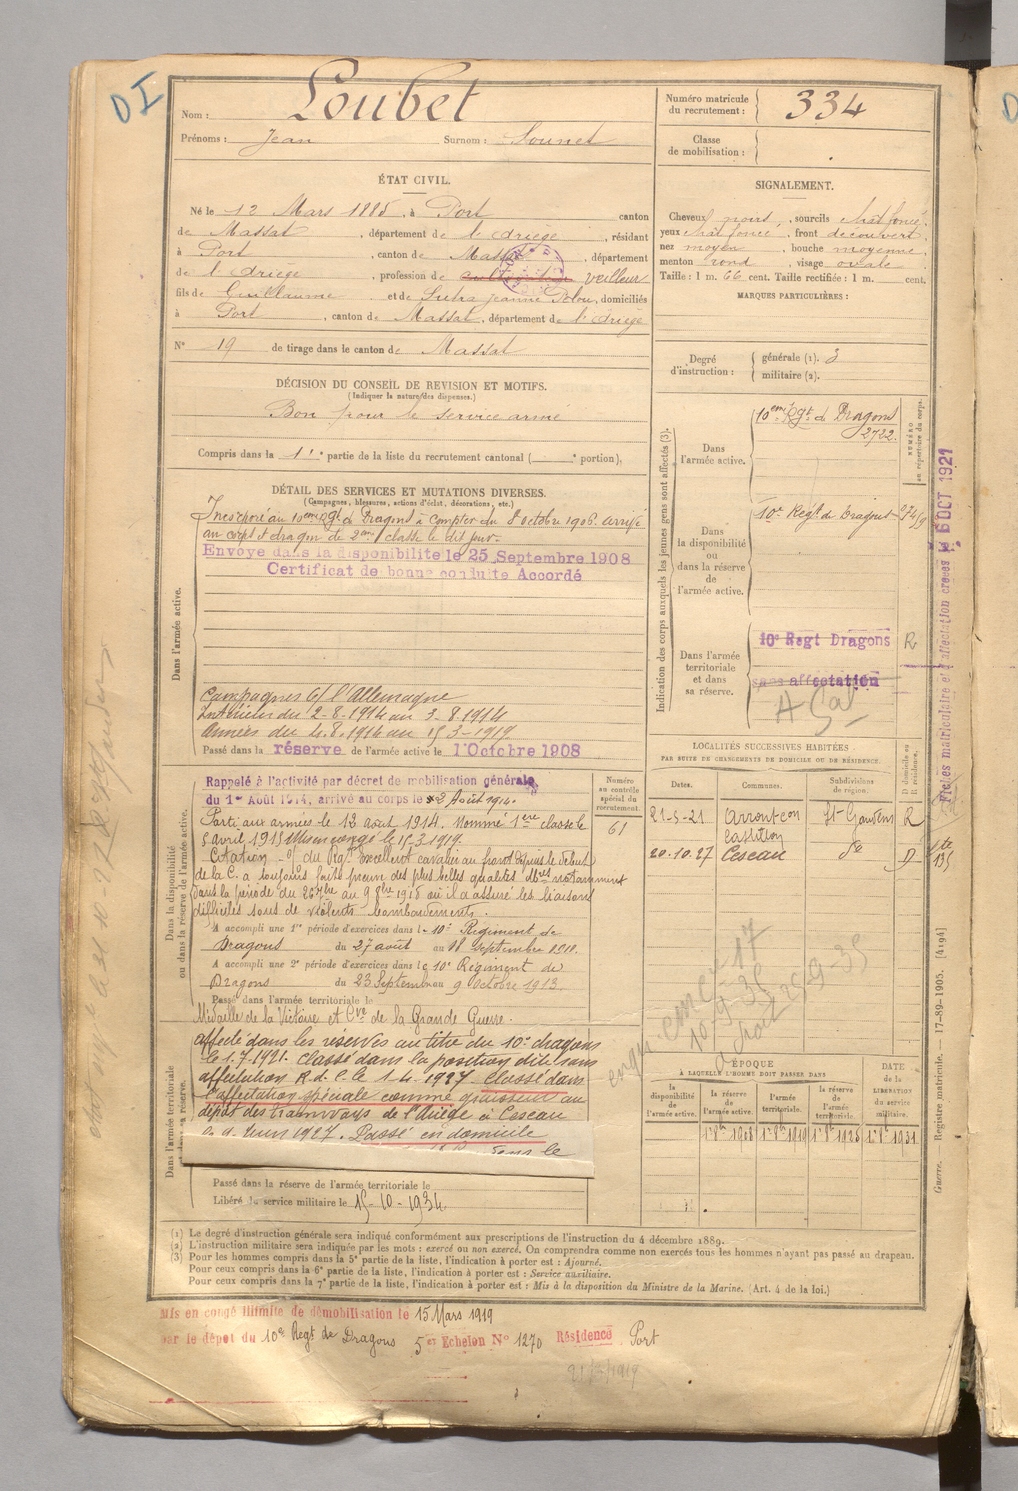 DI
Nom : Loubet
Prénoms : Jean Surnom : Sounet
Numéro matricule du recrutement : 334
Classe de mobilisation :
ÉTAT CIVIL.
Né le 12 Mars 1885, à Port canton
de Massat, département de l'Ariège, résidant
à Port, canton de Massat, département
de l'Ariège, profession de cultivateur veilleur
fils de Guillaume et de Sutra Jeanne, domiciliés
à Port, canton de Massat, département de l'Ariège
N° 19 de tirage dans le canton de Massat
SIGNALEMENT.
Cheveux noirs, sourcils chat foncé,
yeux chat foncé, front découvert,
nez moyen, bouche moyenne,
menton rond, visage ovale
Taille : 1 m. 66 cent. Taille rectifiée : 1 m. cent.
MARQUES PARTICULIÈRES :
Degré d'instruction : générale (1). 3
militaire (2).
DÉCISION DU CONSEIL DE REVISION ET MOTIFS.
(Indiquer la nature des dispenses.)
Bon pour le service armé
Compris dans la 1re partie de la liste du recrutement cantonal ( e portion),
DÉTAIL DES SERVICES ET MUTATIONS DIVERSES.
(Campagnes, blessures, actions d'éclat, décorations, etc.)
Dans l'armée active.
Incorporé au 10eme Rgt de Dragons à compter du 8 octobre 1906. arrivé
au corps & dragon de 2eme classe le dit jour.
Envoyé dans la disponibilité le 25 Septembre 1908
Certificat de bonne conduite Accordé
Campagnes C/ l'Allemagne
Intérieur du 2-8-1914 au 3-8-1914
Armées du 4.8.1914 au 15-3-1919.
Passé dans la réserve de l'armée active le 1 Octobre 1908
Dans la disponibilité ou dans la réserve de l'armée active.
Rappelé à l'activité par décret de mobilisation générale
du 1er Août 1914, arrivé au corps le 2 Août 1914.
Parti aux armées le 12 août 1914. Nommé 1ere classe le
5 avril 1915 Mis en congé le 15.3.1919.
Citation - O/ du Rgt. Excellent cavalier au front depuis le début
de la C. a toujours fait preuve des plus belles qualités notamment
dans la période du 26 7bre au 9 8bre 1918 où il a assuré les liaisons
difficiles sous de violents bombardements.
A accompli une 1re période d'exercices dans le 10e Régiment de
Dragons du 27 août au 18 septembre 1910.
A accompli une 2e période d'exercices dans le 10e Régiment de
Dragons du 23 Septembre au 9 Octobre 1913.
Passé dans l'armée territoriale le
Médaille de la Victoire et Cve de la Grande Guerre.
Numéro au contrôle spécial du recrutement.
61
Dans l'armée territoriale et dans sa réserve.
affecté dans les réserves au titre du 10e dragons
le 1.7.1921. Classé dans la position dite sans
affectation R.d.C. le 1-4-1927. Classé dans
l'affectation spéciale comme graisseur au
dépôt des tramways de l'Ariège à Cescau
Juin 1927. Passé en domicile
sans le
Passé dans la réserve de l'armée territoriale le
Libéré du service militaire le 15-10-1934.
Indication des corps auxquels les jeunes gens sont affectés (3).
NUMÉRO au répertoire du corps.
Dans l'armée active.
10eme Rgt de Dragons
2722.
Dans la disponibilité ou dans la réserve de l'armée active.
10e Regt de Dragons
Dans l'armée territoriale et dans sa réserve.
10e Regt Dragons R
sans affectation
Fiches matriculaire et d'affectation créées le 6 OCT 1921
LOCALITÉS SUCCESSIVES HABITÉES
PAR SUITE DE CHANGEMENTS DE DOMICILE OU DE RÉSIDENCE.
Dates. Communes. Subdivisions de région. D domicile ou R résidence.
21-5-21 Castillon St Gaudens R
20.10.27 Cescau do D
ÉPOQUE
À LAQUELLE L'HOMME DOIT PASSER DANS
la disponibilité de l'armée active. la réserve de l'armée active. l'armée territoriale. la réserve de l'armée territoriale.
DATE de la LIBÉRATION du service militaire.
1er 8bre 1908 1er 8bre 1919 1er 8bre 1925 1er 8bre 1931
Guerre. — Registre matricule. — 17-89-1905. [4194]
(1) Le degré d'instruction générale sera indiqué conformément aux prescriptions de l'instruction du 4 décembre 1889.
(2) L'instruction militaire sera indiquée par les mots : exercé ou non exercé. On comprendra comme non exercés tous les hommes n'ayant pas passé au drapeau.
(3) Pour les hommes compris dans la 5e partie de la liste, l'indication à porter est : Ajourné.
Pour ceux compris dans la 6e partie de la liste, l'indication à porter est : Service auxiliaire.
Pour ceux compris dans la 7e partie de la liste, l'indication à porter est : Mis à la disposition du Ministre de la Marine. (Art. 4 de la loi.)
Mis en congé illimité de démobilisation le 15 Mars 1919
par le dépôt du 10e Regt de Dragons 5e Echelon N° 1270 Résidence Port